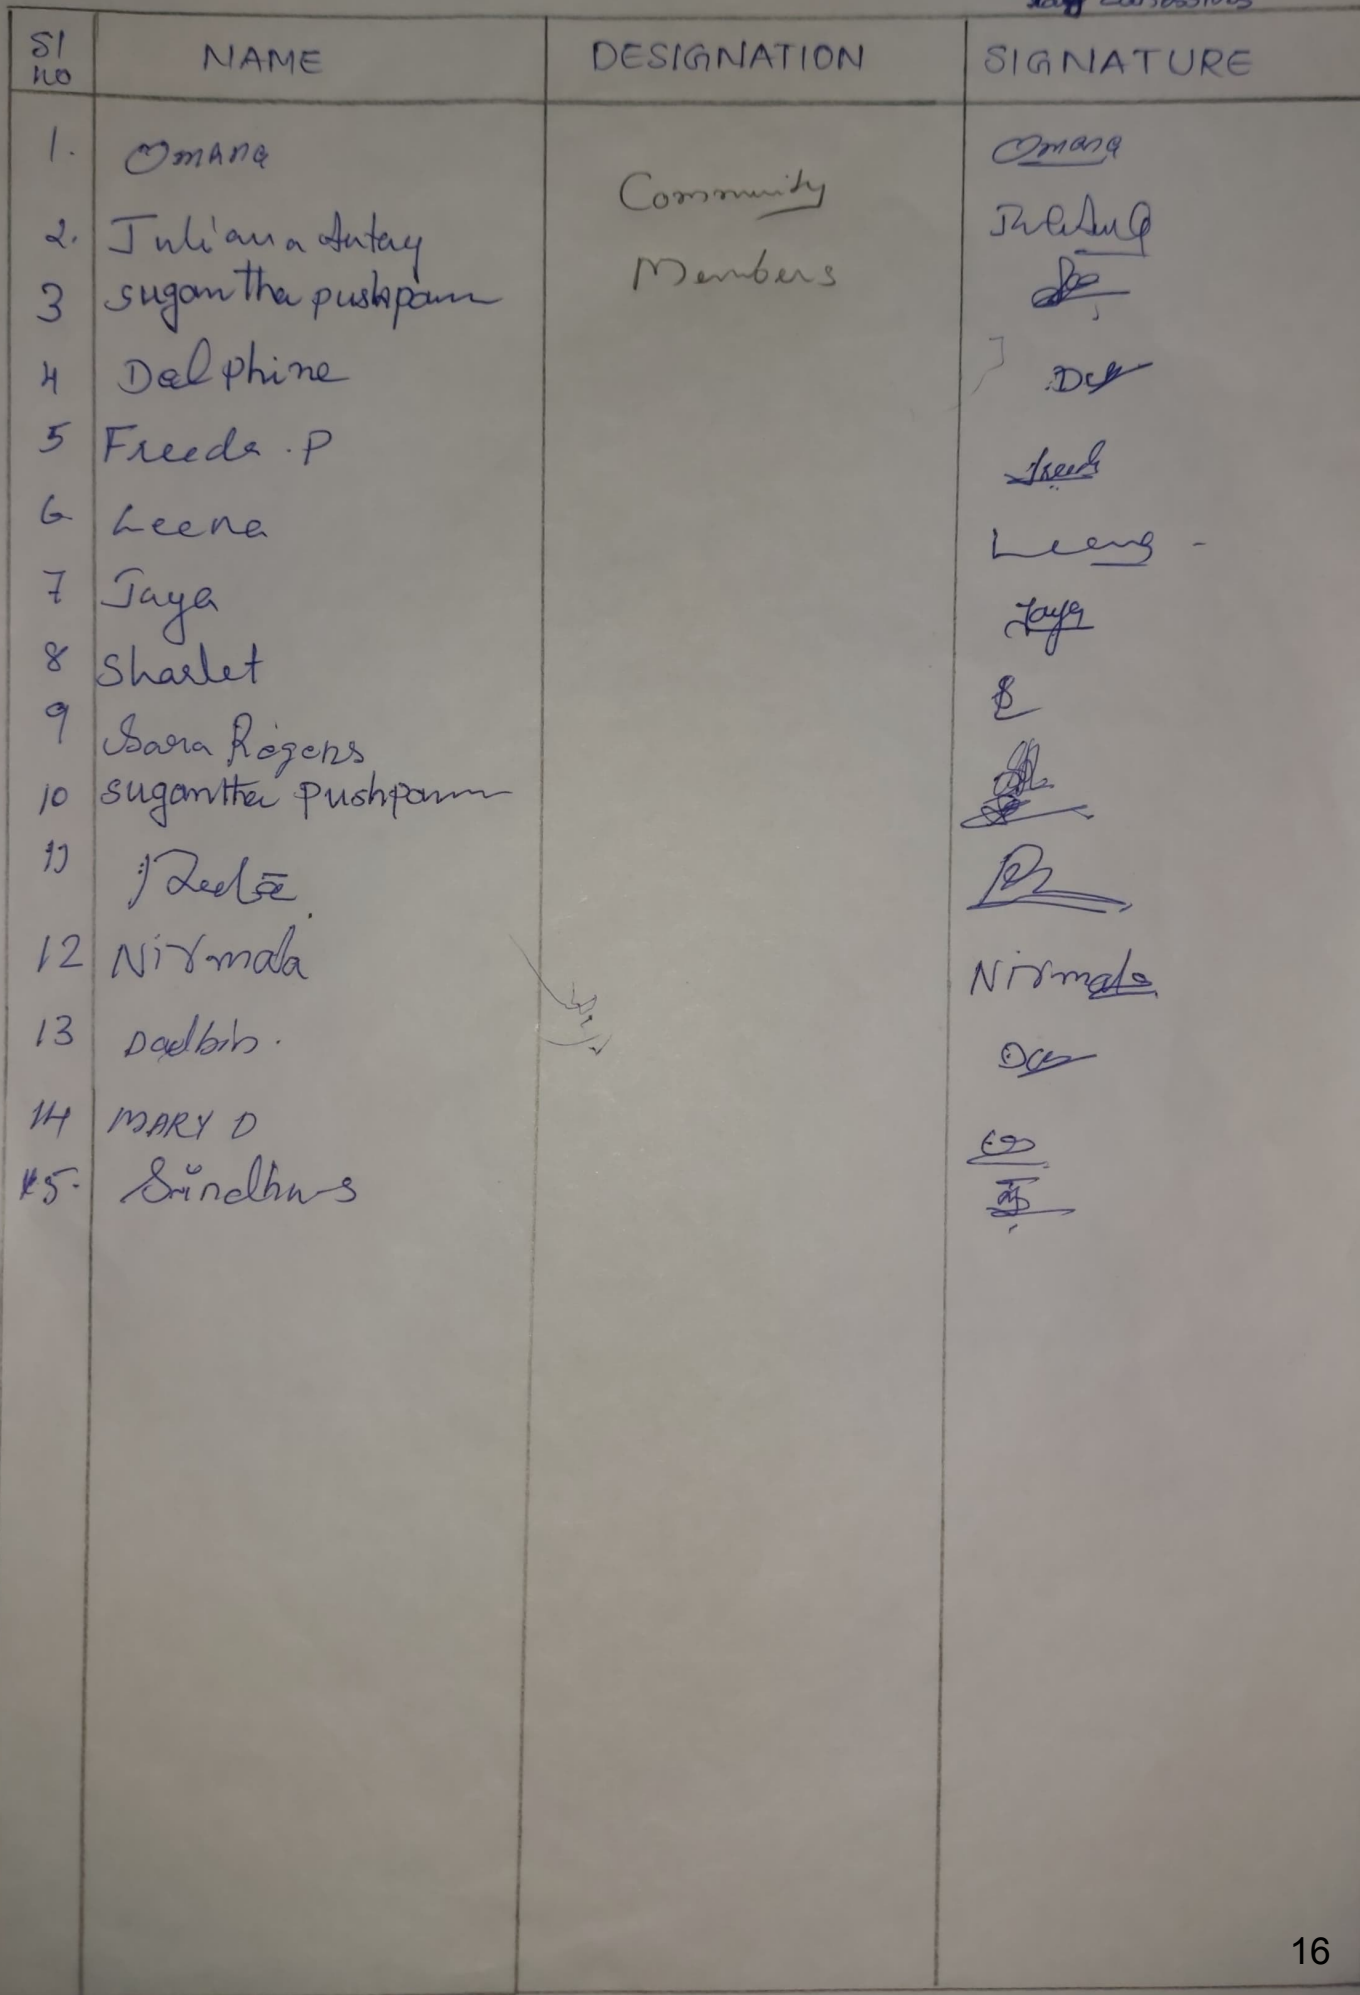 SI no NAME DESIGNATION SIGNATURE
1. Omana Omana
Community
2. Juliana Antay
Members
3 Sugantha pushpam
4 Delphine
5 Freeda . P Freeda
6 Leena Leena -
7 Jaya Jaya
8 Sharlet
9 Sara Rogens
10 Sugantha pushpam
11
12 Nirmala Nirmala
13
14 MARY D
15. Sindhu S
16